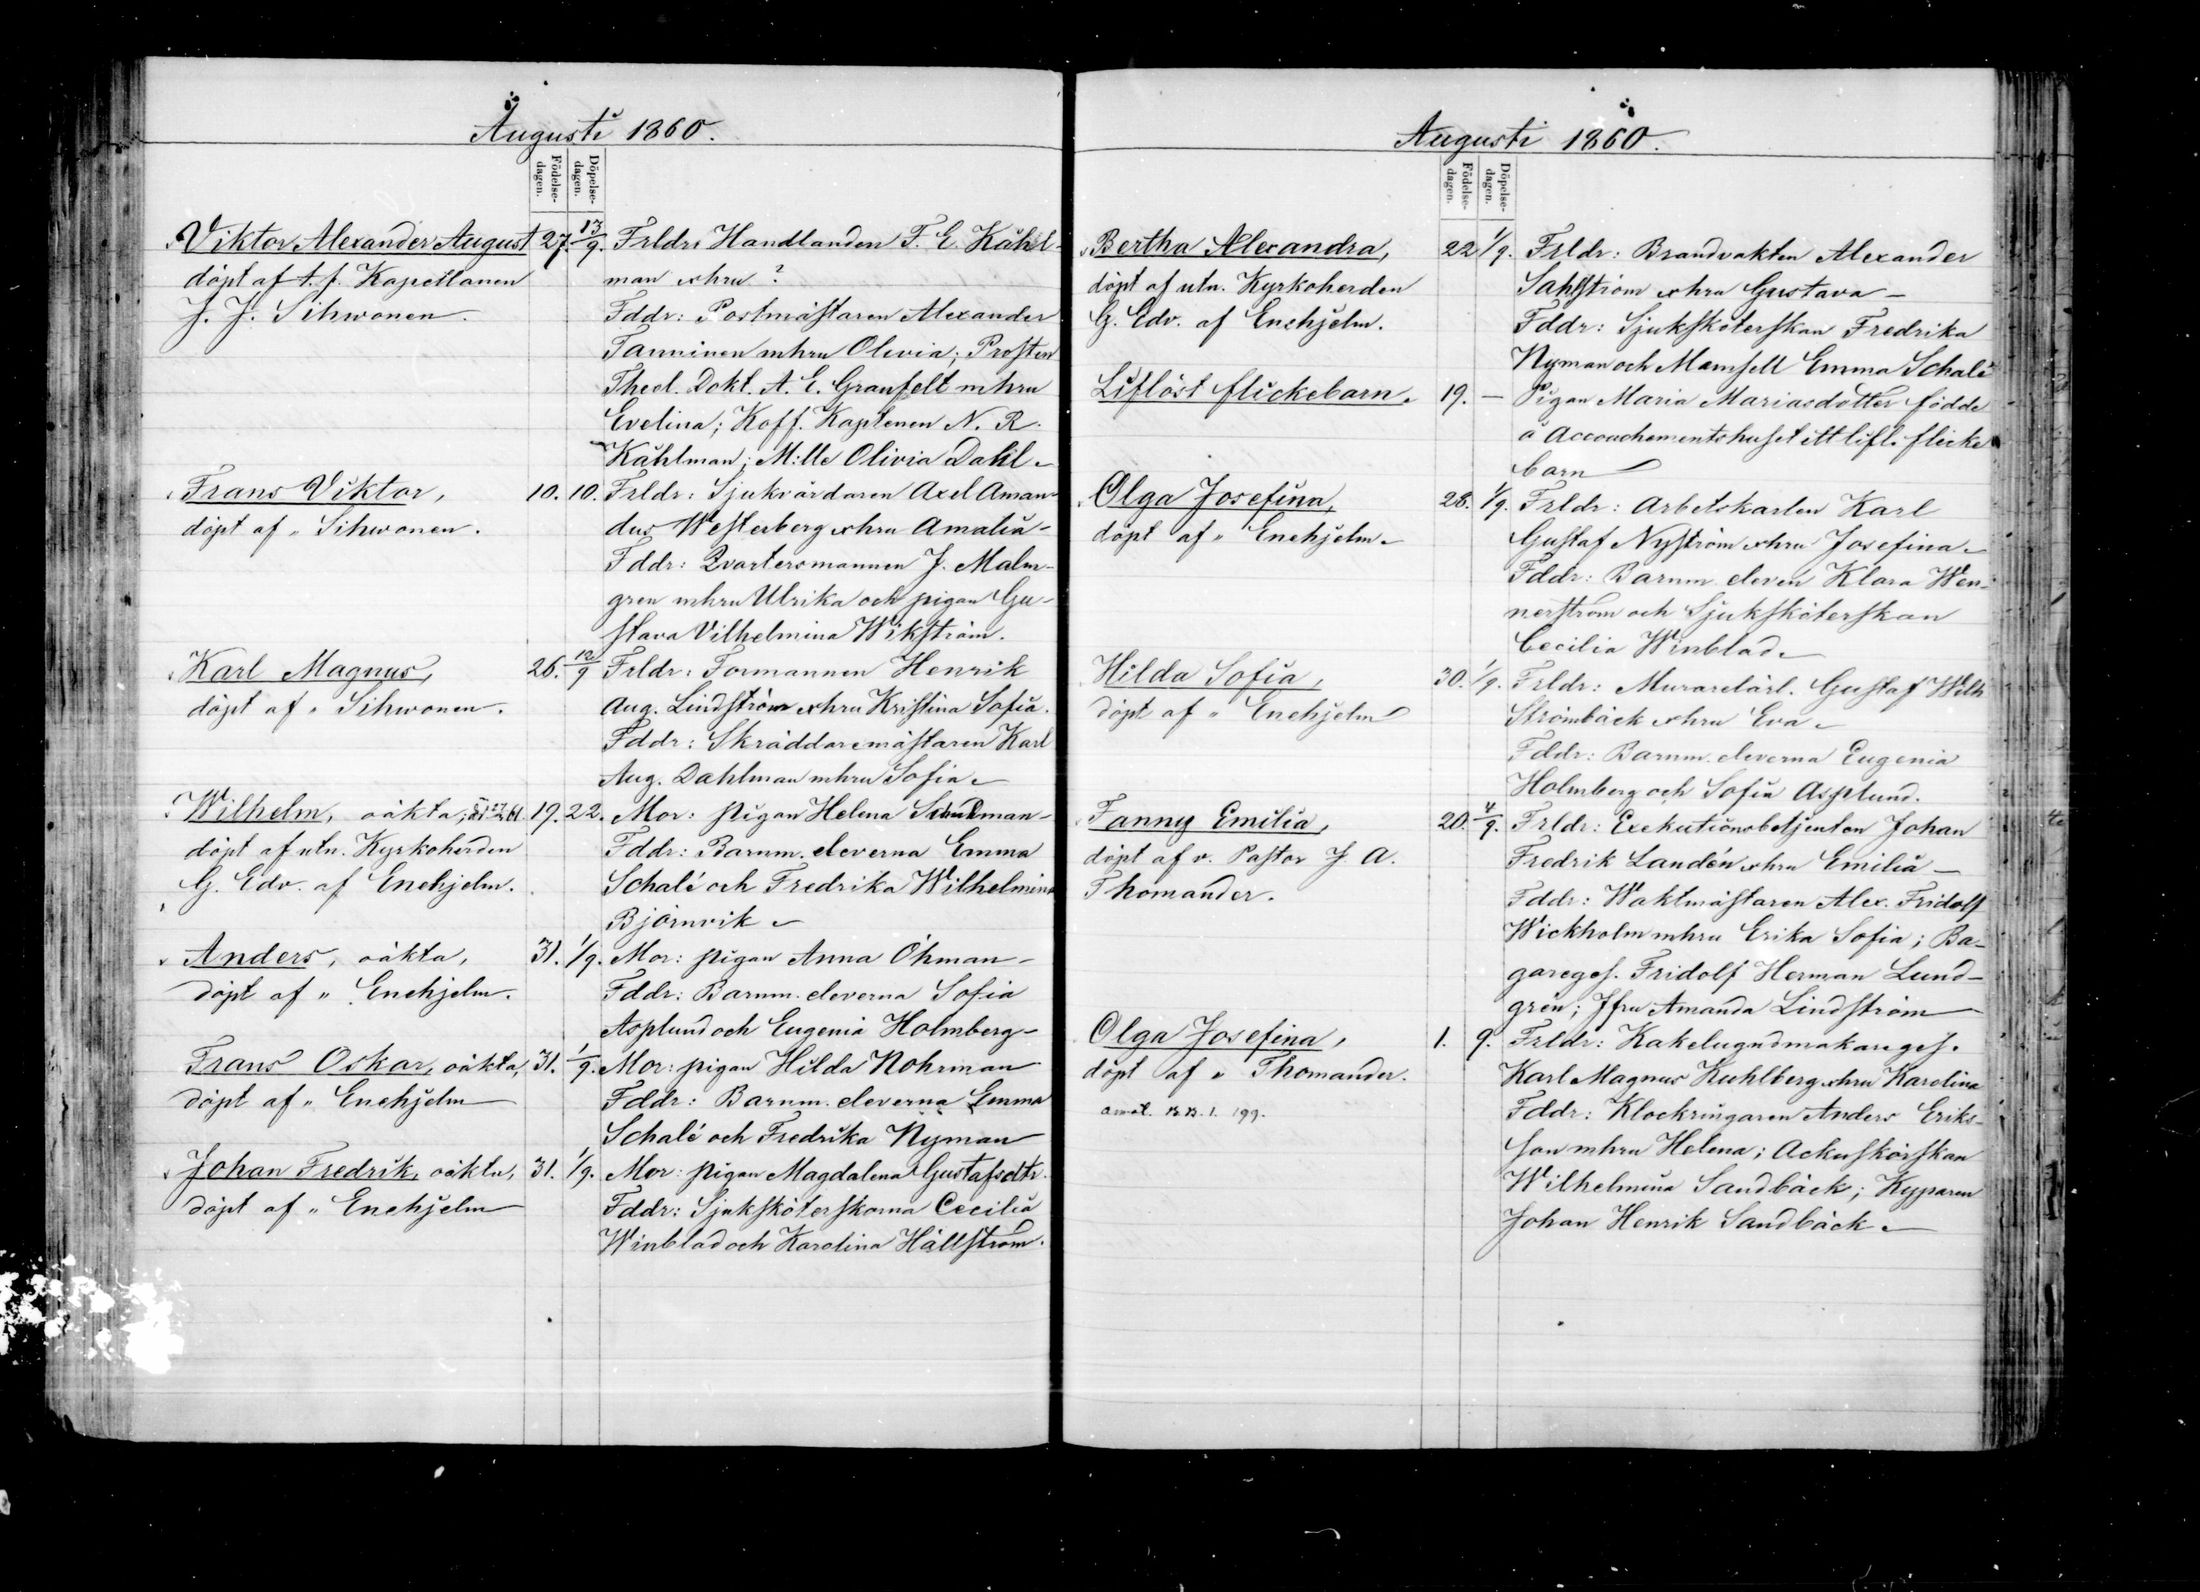 Augusti 1860.
Födelse-
dagen.
Döpelse-
dagen.
Viktor Alexander August 27. 13/9. Frldr: Handlanden F. E. Kåhl-
döpt af t. f. Kapellanen man o hru ?
J. J. Sihwonen. Fddr: Postmästaren Alexander
Tanninen m hru Olivia; Prosten
Theol. Dokt. A. E. Granfelt m hru
Evelina; Koff. Kaptenen N. R.
Kåhlman; M:lle Olivia Dahl.
Frans Viktor, 10. 10. Frldr: Sjukvårdaren Axel Aman-
döpt af " Sihwonen. dus Westerberg o hru Amalia-
Fddr: Qvartersmannen J. Malm-
gren m hru Ulrika och pigan Gu-
stava Vilhelmina Wikström.
Karl Magnus, 26. 12/9 Frldr: Formannen Henrik
döpt af " Sihwonen. Aug. Lindström o hru Kristina Sofia.
Fddr: Skräddaremästaren Karl
Aug. Dahlman m hru Sofia.
Wilhelm, oäkta, 19. 22. Mor: pigan Helena Schulman-
döpt af utn. Kyrkoherden Fddr: Barnm. eleverna Emma
G. Edv. af Enehjelm. Schalé och Fredrika Wilhelmina
Björnvik
Anders, oäkta, 31. 1/9. Mor: pigan Anna Öhman-
döpt af " Enehjelm. Fddr: Barnm. eleverna Sofia
Asplund och Eugenia Holmberg-
Frans Oskar, oäkta, 31. 1/9. Mor: pigan Hilda Nohrman
döpt af " Enehjelm Fddr: Barnm. eleverna Emma
Schalé och Fredrika Nyman
Johan Fredrik, oäkta, 31. 1/9. Mor: pigan Magdalena Gustafsdtr.
döpt af " Enehjelm Fddr: Sjuksköterskorna Cecilia
Winblad och Karolina Hällström.
Augusti 1860.
Födelse-
dagen.
Döpelse-
dagen.
Bertha Alexandra, 22 1/9. Frldr: Brandvakten Alexander
döpt af utn. Kyrkoherden Sahlström o hru Gustava-
G. Edv. af Enehjelm. Fddr: Sjuksköterskan Fredrika
Nyman och Mamsell Emma Schalé
Liflöst flickebarn. 19. - Pigan Maria Mariasdotter födde
å Accouchementshuset itt lifl. flicke
barn
Olga Josefina, 28. 1/9. Frldr: Arbetskarlen Karl
döpt af " Enehjelm. Gustaf Nyström o hru Josefina.
Fddr: Barnm. eleven Klara Wen-
nerström och Sjuksköterskan
Cecilia Winblad.
Hilda Sofia, 30. 1/9. Frldr: Murarelärl. Gustaf Wilh
döpt af " Enehjelm Strömbäck o hru Eva.
Fddr: Barnm. eleverna Eugenia
Holmberg och Sofia Asplund.
Fanny Emilia, 20. 4/9. Frldr: Exekutionsbetjenten Johan
döpt af v. Pastor J. A. Fredrik Landén o hru Emilia-
Thomander. Fddr: Waktmästaren Alex. Fridolf
Wickholm m hru Erika Sofia; Ba-
gareges. Fridolf Herman Lund-
grén; Jfru Amanda Lindström
Olga Josefina, 1. 9. Frldr: Kakelugnsmakareges.
döpt af " Thomander. Karl Magnus Kuhlberg o hru Karolina
Fddr: Klockringaren Anders Eriks-
son m hru Helena; Ackuskörskan
Wilhelmina Sandbäck; Kyparen
Johan Henrik Sandbäck.